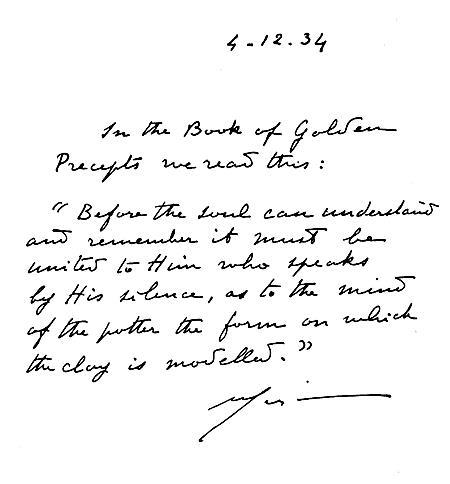 4-12.34
In the Book of Golden
Precepts we read this:
“Before the soul can understand
and remember it must be
united to Him who speaks
by His silence, as to the mind
of the potter the form on which
the clay is modelled.”